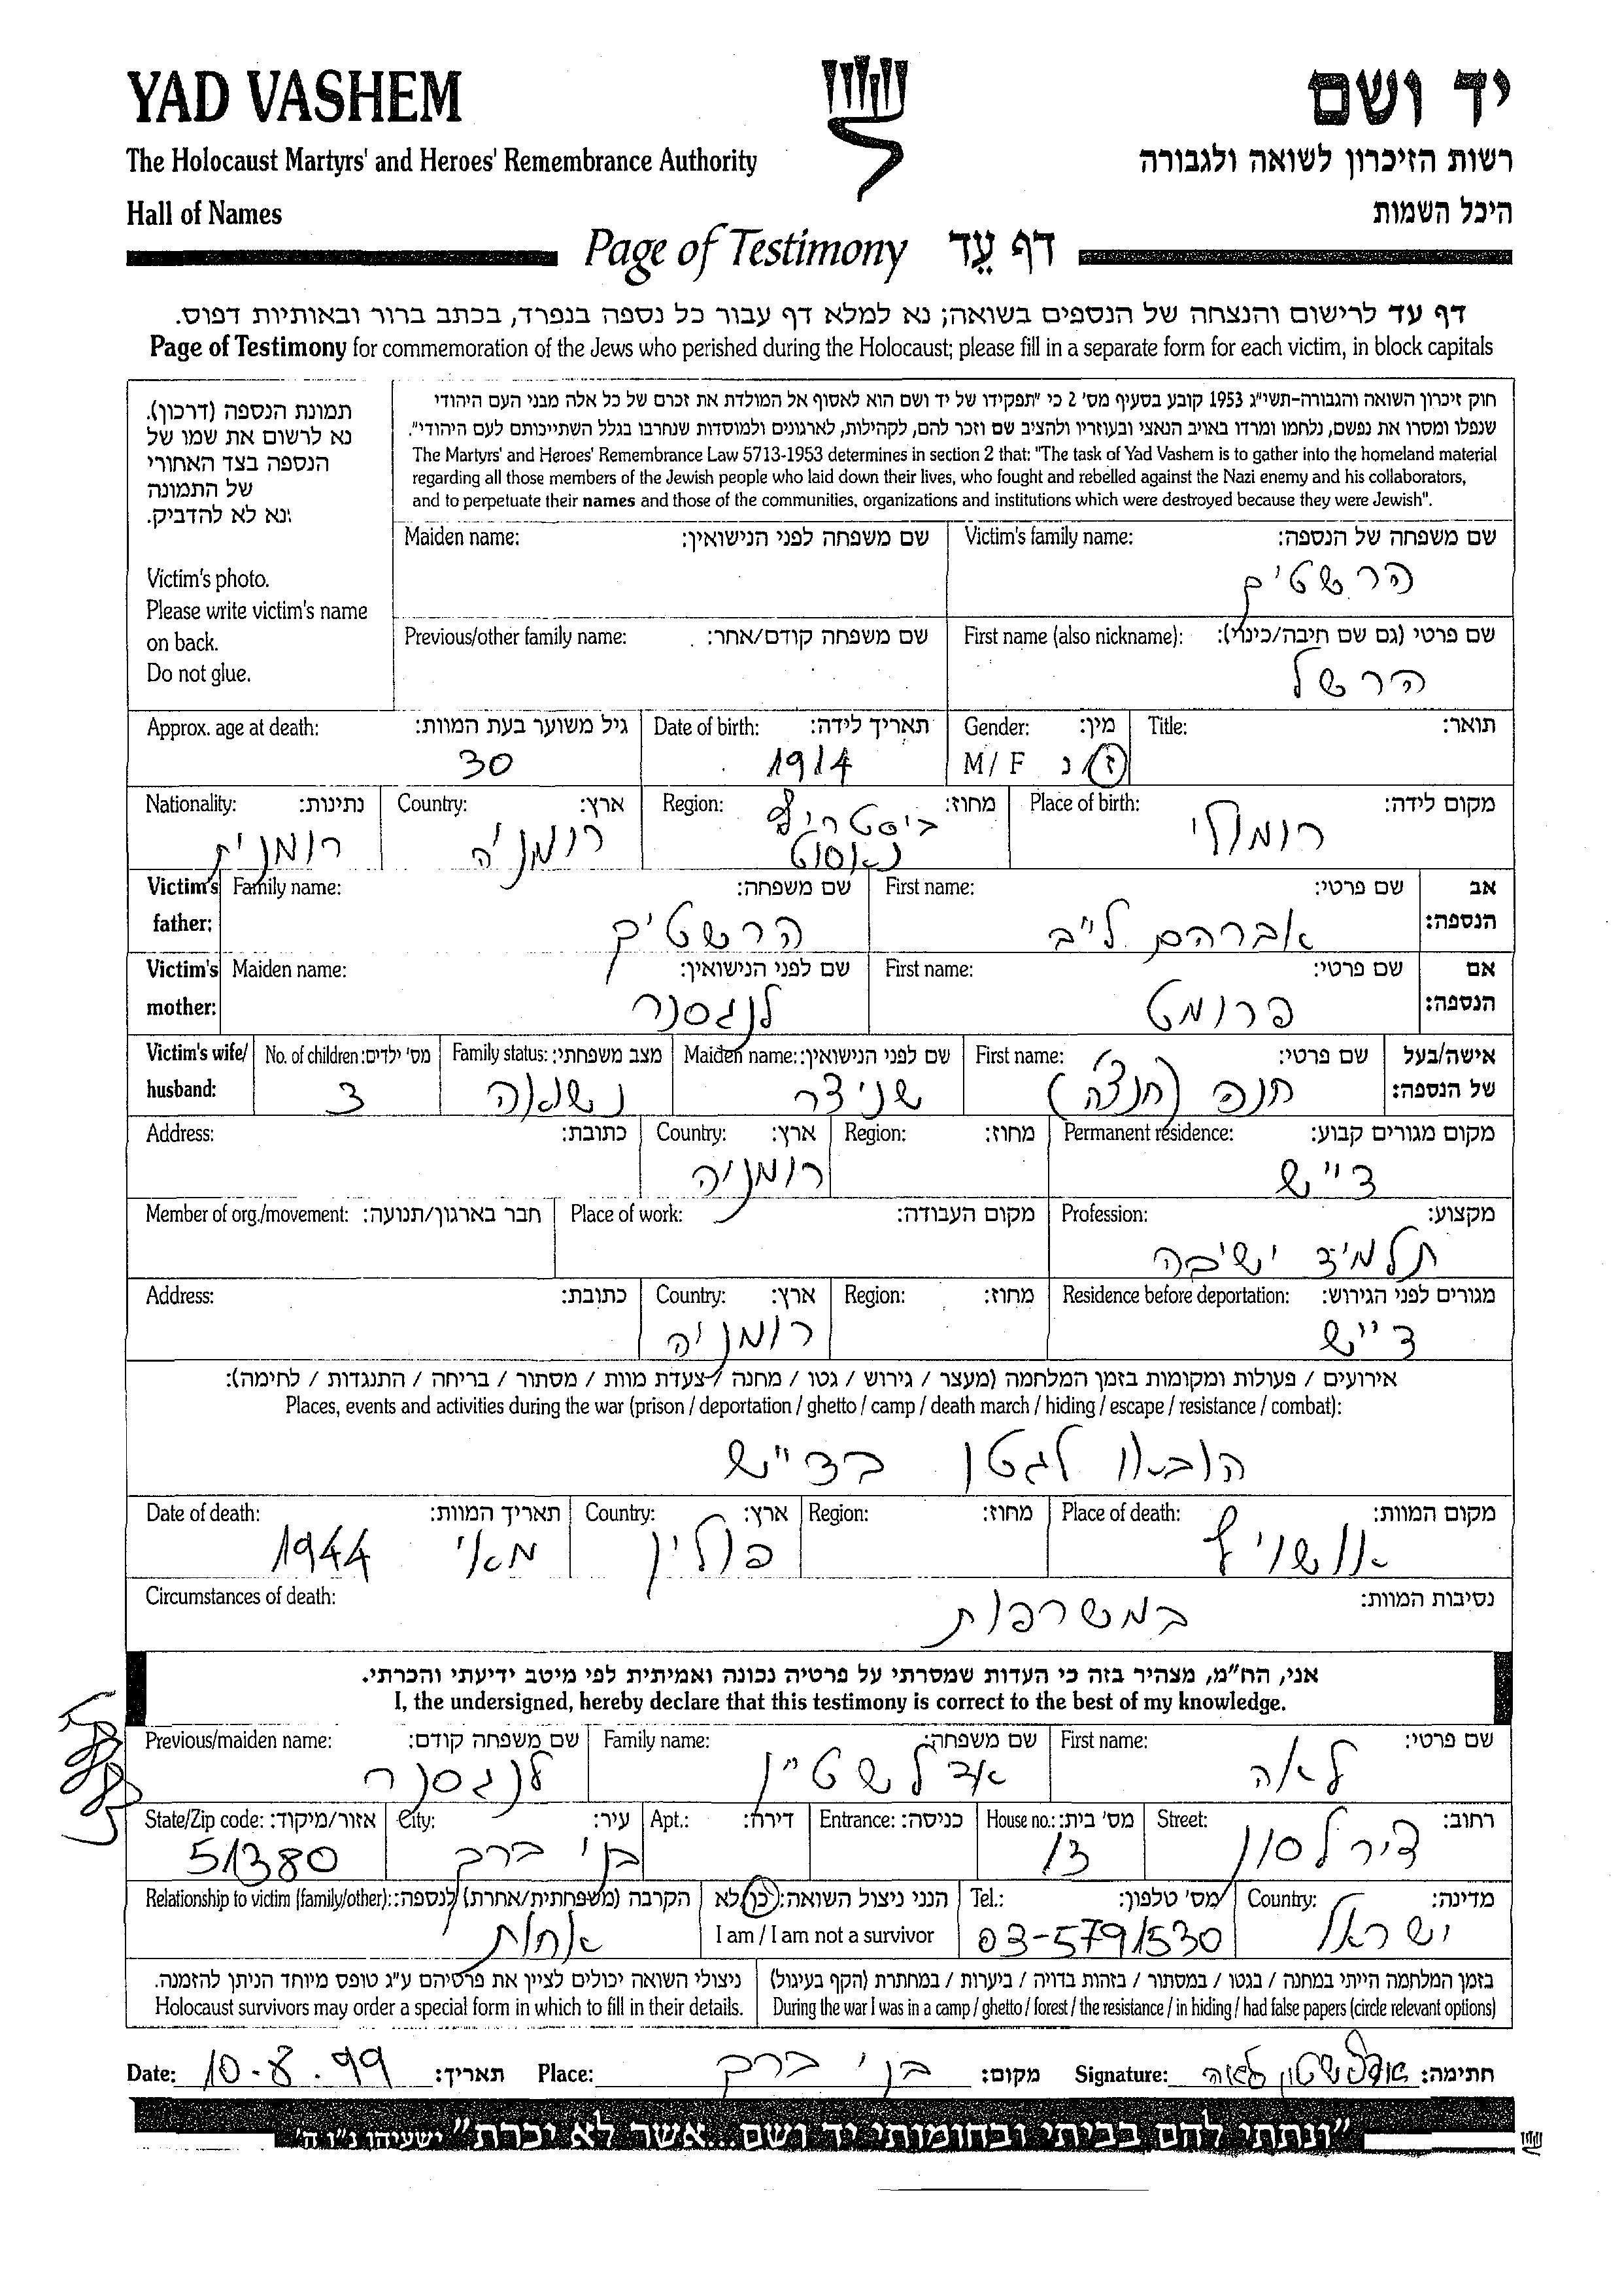 YAD VASHEM
יד ושם
The Holocaust Martyrs' and Heroes' Remembrance Authority
רשות הזיכרון לשואה ולגבורה
Hall of Names
היכל השמות
Page of Testimony דף עֵד
דף עד לרישום והנצחה של הנספים בשואה; נא למלא דף עבור כל נספה בנפרד, בכתב ברור ובאותיות דפוס.
Page of Testimony for commemoration of the Jews who perished during the Holocaust; please fill in a separate form for each victim, in block capitals
תמונת הנספה (דרכון).
נא לרשום את שמו של
הנספה בצד האחורי
של התמונה
נא לא להדביק.
Victim's photo.
Please write victim's name
on back.
Do not glue.
חוק זיכרון השואה והגבורה-תשי"ג 1953 קובע בסעיף מס' 2 כי "תפקידו של יד ושם הוא לאסוף אל המולדת את זכרם של כל אלה מבני העם היהודי
שנפלו ומסרו את נפשם, נלחמו ומרדו באויב הנאצי ובעוזריו ולהציב שם וזכר להם, לקהילות, לארגונים ולמוסדות שנחרבו בגלל השתייכותם לעם היהודי".
The Martyrs' and Heroes' Remembrance Law 5713-1953 determines in section 2 that: "The task of Yad Vashem is to gather into the homeland material
regarding all those members of the Jewish people who laid down their lives, who fought and rebelled against the Nazi enemy and his collaborators,
and to perpetuate their names and those of the communities, organizations and institutions which were destroyed because they were Jewish".
Maiden name: שם משפחה לפני הנישואין:
Victim's family name: שם משפחה של הנספה:
הרשטיק
Previous/other family name: שם משפחה קודם/אחר:
First name (also nickname): שם פרטי (גם שם חיבה/כינוי):
הרשל
Approx. age at death: גיל משוער בעת המוות:
30
Date of birth: תאריך לידה:
1914
Gender: מין:
M / F ז/נ
Title: תואר:
Nationality: נתינות:
רומנית
Country: ארץ:
רומניה
Region: מחוז:
ביסטריץ
נאסוט
Place of birth: מקום לידה:
רומולי
Victim's father: Family name: שם משפחה:
הרשטיק
First name: שם פרטי: אב הנספה:
אברהם לייב
Victim's mother: Maiden name: שם לפני הנישואין:
לנגסנר
First name: שם פרטי: אם הנספה:
פרומט
Victim's wife/ husband: No. of children: מס' ילדים:
3
Family status: מצב משפחתי:
נשואה
Maiden name: שם לפני הנישואין:
שניצר
First name: שם פרטי: אישה/בעל של הנספה:
חנה (חנצ'ה)
Address: כתובת:
Country: ארץ:
רומניה
Region: מחוז:
Permanent residence: מקום מגורים קבוע:
דייש
Member of org./movement: חבר בארגון/תנועה:
Place of work: מקום העבודה:
Profession: מקצוע:
תלמיד ישיבה
Address: כתובת:
Country: ארץ:
רומניה
Region: מחוז:
Residence before deportation: מגורים לפני הגירוש:
דייש
אירועים / פעולות ומקומות בזמן המלחמה (מעצר / גירוש / גטו / מחנה / צעדת מוות / מסתור / בריחה / התנגדות / לחימה):
Places, events and activities during the war (prison / deportation / ghetto / camp / death march / hiding / escape / resistance / combat):
הובאו לגטו בדייש
Date of death: תאריך המוות:
מאי 1944
Country: ארץ:
פולין
Region: מחוז:
Place of death: מקום המוות:
אושויץ
Circumstances of death: נסיבות המוות:
במשרפות
אני, הח"מ, מצהיר בזה כי העדות שמסרתי על פרטיה נכונה ואמיתית לפי מיטב ידיעתי והכרתי.
I, the undersigned, hereby declare that this testimony is correct to the best of my knowledge.
Previous/maiden name: שם משפחה קודם:
לנגסנר
Family name: שם משפחה:
אדלשטיין
First name: שם פרטי:
לאה
State/Zip code: אזור/מיקוד:
51380
City: עיר:
בני ברק
Apt.: דירה:
Entrance: כניסה:
House no.: מס' בית:
13
Street: רחוב:
Relationship to victim (family/other): הקרבה (משפחתית/אחרת) לנספה:
אחות
הנני ניצול השואה: כן/לא
I am / I am not a survivor
Tel.: מס' טלפון:
03-5791530
Country: מדינה:
ישראל
ניצולי השואה יכולים לציין את פרטיהם ע"ג טופס מיוחד הניתן להזמנה.
Holocaust survivors may order a special form in which to fill in their details.
בזמן המלחמה הייתי במחנה / בגטו / במסתור / בזהות בדויה / ביערות / במחתרת (הקף בעיגול)
During the war I was in a camp / ghetto / forest / the resistance / in hiding / had false papers (circle relevant options)
Date: 10-8.99 תאריך: Place: בני ברק מקום: Signature: אדלשטין לאה חתימה:
"ונתתי להם בביתי ובחומותי יד ושם...אשר לא יכרת" ישעיהו נ"ו ה'